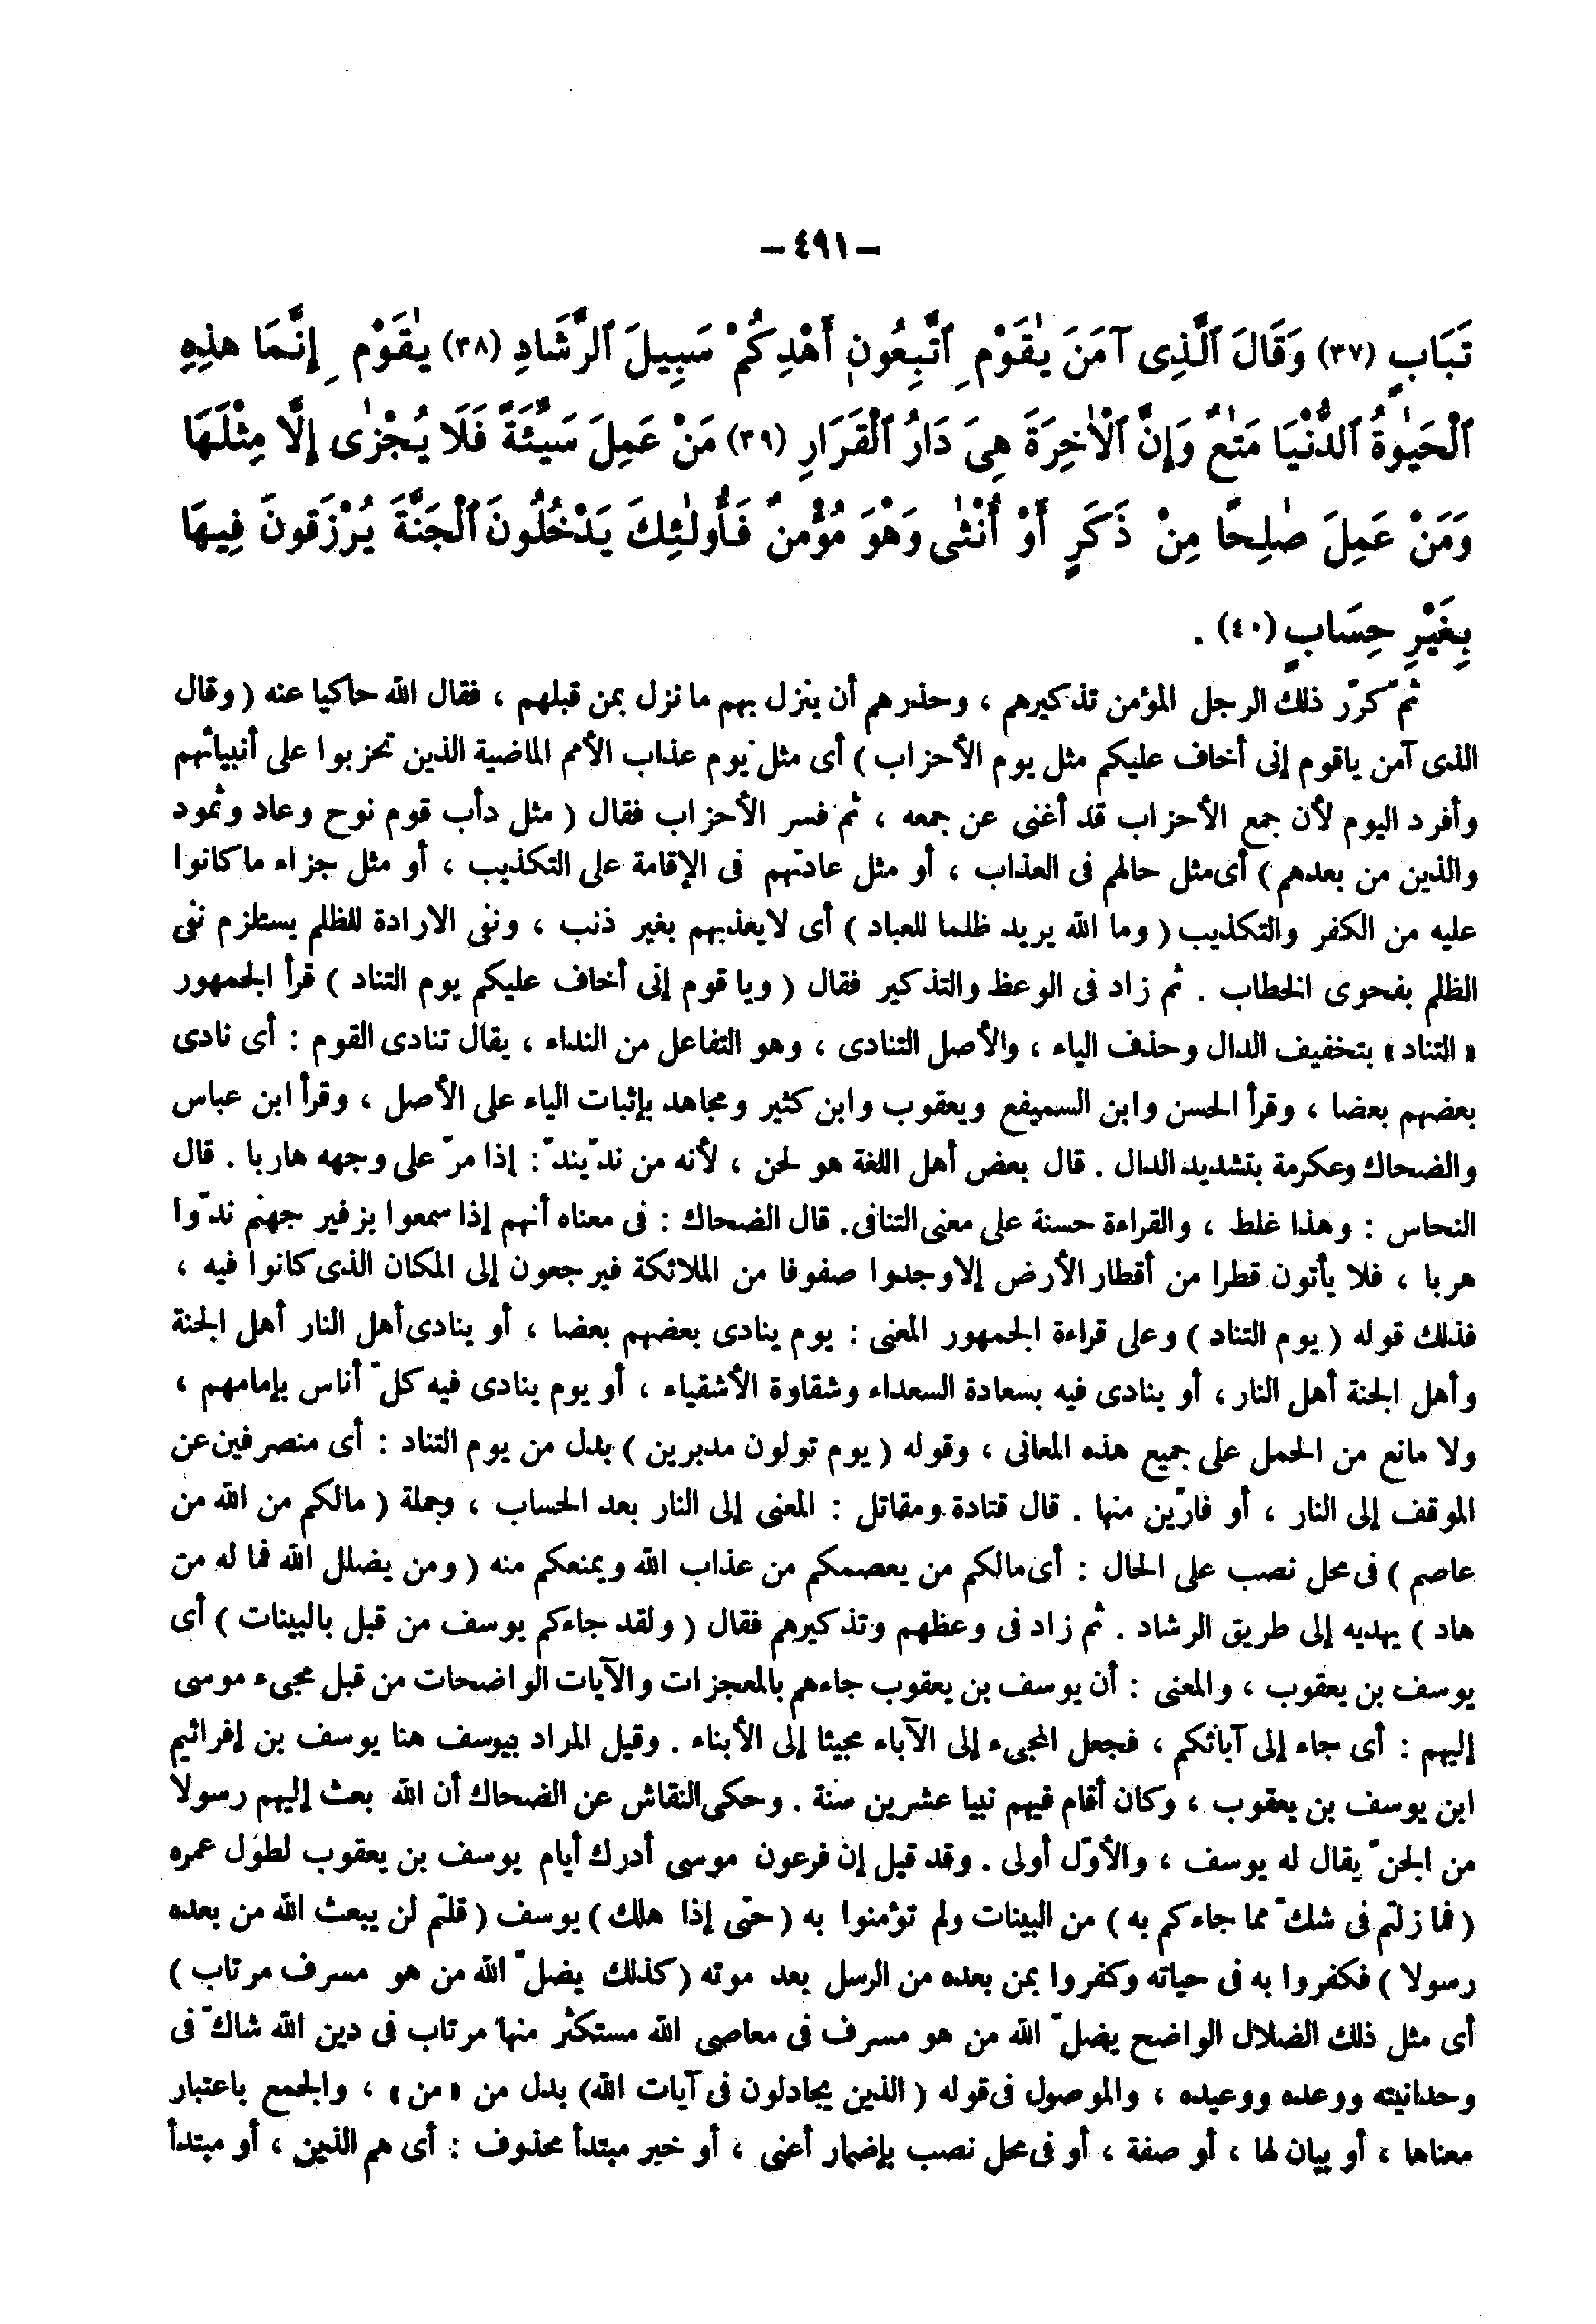 — ٤٩١ —
تَبَابٍ (٣٧) وَقَالَ ٱلَّذِى آمَنَ يٰقَوْمِ ٱتَّبِعُونِ أَهْدِكُمْ سَبِيلَ ٱلرَّشَادِ (٣٨) يٰقَوْمِ إِنَّمَا هٰذِهِ
ٱلْحَيٰوةُ ٱلدُّنْيَا مَتٰعٌ وَإِنَّ ٱلْاٰخِرَةَ هِىَ دَارُ ٱلْقَرَارِ (٣٩) مَنْ عَمِلَ سَيِّئَةً فَلَا يُجْزٰى إِلَّا مِثْلَهَا
وَمَنْ عَمِلَ صٰلِحًا مِنْ ذَكَرٍ أَوْ أُنْثٰى وَهْوَ مُؤْمِنٌ فَأُولٰئِكَ يَدْخُلُونَ ٱلْجَنَّةَ يُرْزَقُونَ فِيهَا
بِغَيْرِ حِسَابٍ (٤٠) .
ثمّ كرّر ذلك الرجل المؤمن تذكيرهم ، وحذرهم أن ينزل بهم ما نزل بمن قبلهم ، فقال الله حاكيا عنه ( وقال
الذى آمن ياقوم إنى أخاف عليكم مثل يوم الأحزاب ) أى مثل يوم عذاب الأمم الماضية الذين تحزبوا على أنبيائهم
وأفرد اليوم لأن جمع الأحزاب قد أغنى عن جمعه ، ثم فسر الأحزاب فقال ( مثل دأب قوم نوح وعاد وثمود
والذين من بعدهم ) أى مثل حالهم فى العذاب ، أو مثل عادتهم فى الإقامة على التكذيب ، أو مثل جزاء ما كانوا
عليه من الكفر والتكذيب ( وما الله يريد ظلما للعباد ) أى لايعذبهم بغير ذنب ، ونفى الارادة للظلم يستلزم نفى
الظلم بفحوى الخطاب . ثم زاد فى الوعظ والتذكير فقال ( ويا قوم إنى أخاف عليكم يوم التناد ) قرأ الجمهور
« التناد » بتخفيف الدال وحذف الياء ، والأصل التنادى ، وهو التفاعل من النداء ، يقال تنادى القوم : أى نادى
بعضهم بعضا ، وقرأ الحسن وابن السميفع ويعقوب وابن كثير ومجاهد بإثبات الياء على الأصل ، وقرأ ابن عباس
والضحاك وعكرمة بتشديد الدال . قال بعض أهل اللغة هو لحن ، لأنه من ندّ يندّ : إذا مرّ على وجهه هاربا . قال
النحاس : وهذا غلط ، والقراءة حسنة على معنى التنافى. قال الضحاك : فى معناه أنهم إذا سمعوا بزفير جهنم ندّوا
هربا ، فلا يأتون قطرا من أقطار الأرض إلا وجدوا صفوفا من الملائكة فيرجعون إلى المكان الذى كانوا فيه ،
فذلك قوله ( يوم التناد ) وعلى قراءة الجمهور المعنى : يوم ينادى بعضهم بعضا ، أو ينادى أهل النار أهل الجنة
وأهل الجنة أهل النار ، أو ينادى فيه بسعادة السعداء وشقاوة الأشقياء ، أو يوم ينادى فيه كلّ أناس بإمامهم ،
ولا مانع من الحمل على جميع هذه المعانى ، وقوله ( يوم تولون مدبرين ) بدل من يوم التناد : أى منصرفين عن
الموقف إلى النار ، أو فارّين منها . قال قتادة ومقاتل : المعنى إلى النار بعد الحساب ، وجملة ( مالكم من الله من
عاصم ) فى محل نصب على الحال : أى مالكم من يعصمكم من عذاب الله ويمنعكم منه ( ومن يضلل الله فما له من
هاد ) يهديه إلى طريق الرشاد . ثم زاد فى وعظهم وتذكيرهم فقال ( ولقد جاءكم يوسف من قبل بالبينات ) أى
يوسف بن يعقوب ، والمعنى : أن يوسف بن يعقوب جاءهم بالمعجزات والآيات الواضحات من قبل مجىء موسى
إليهم : أى جاء إلى آبائكم ، فجعل المجىء إلى الآباء مجيئا إلى الأبناء . وقيل المراد بيوسف هنا يوسف بن إفرائيم
ابن يوسف بن يعقوب ، وكان أقام فيهم نبيا عشرين سنة . وحكى النقاش عن الضحاك أن الله بعث إليهم رسولا
من الجنّ يقال له يوسف ، والأوّل أولى . وقد قيل إن فرعون موسى أدرك أيام يوسف بن يعقوب لطول عمره
( فما زلتم فى شكّ مما جاءكم به ) من البينات ولم تؤمنوا به ( حتى إذا هلك ) يوسف ( قلتم لن يبعث الله من بعده
رسولا ) فكفروا به فى حياته وكفروا بمن بعده من الرسل بعد موته ( كذلك يضلّ الله من هو مسرف مرتاب )
أى مثل ذلك الضلال الواضح يضلّ الله من هو مسرف فى معاصى الله مستكثر منها مرتاب فى دين الله شاكّ فى
وحدانيته ووعده ووعيده ، والموصول فى قوله ( الذين يجادلون فى آيات الله) بدل من « من » ، والجمع باعتبار
معناها ، أو بيان لها ، أو صفة ، أو فى محل نصب بإضمار أعنى ، أو خبر مبتدأ محذوف : أى هم الذين ، أو مبتدأ